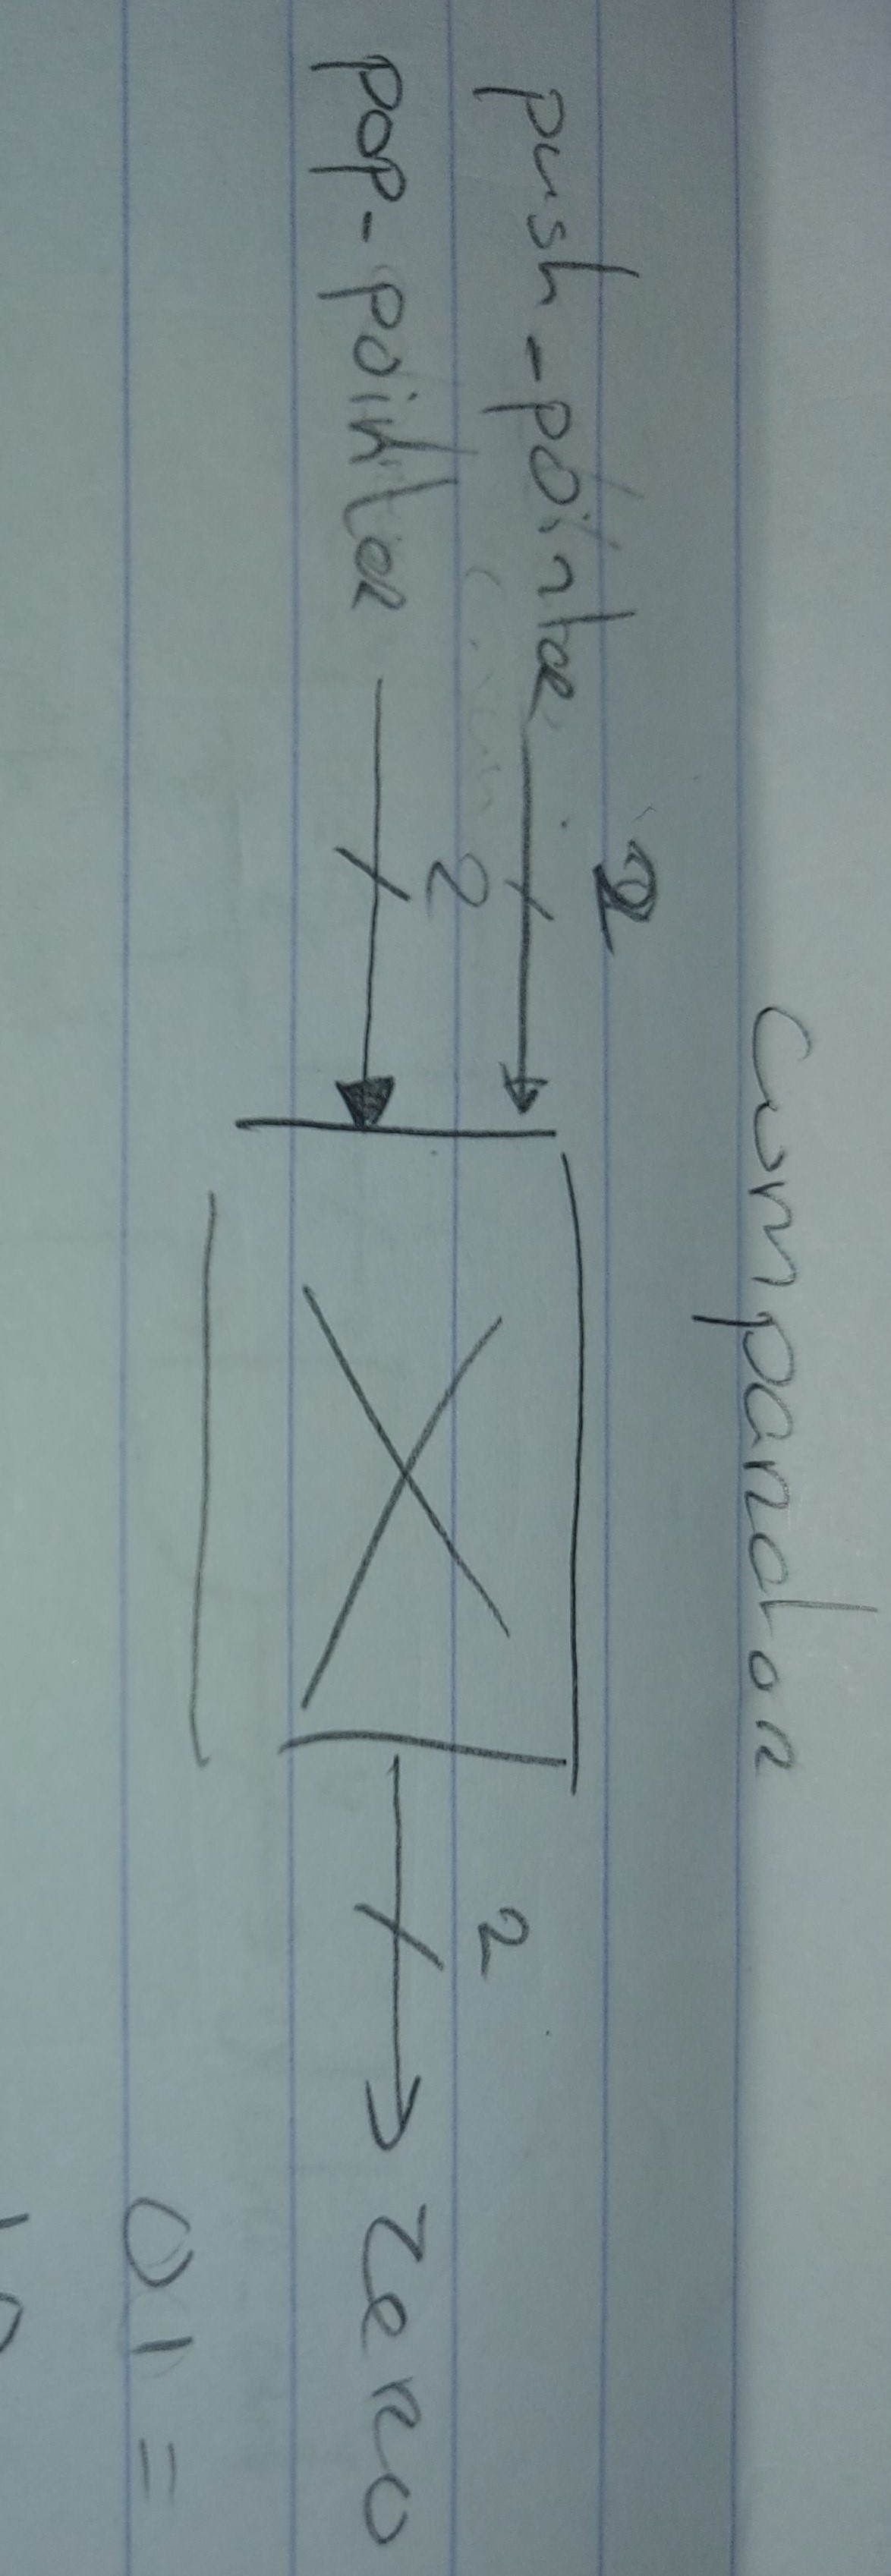 comparator
2
push-pointer
2
2
pop-pointer
zero
01 =
10